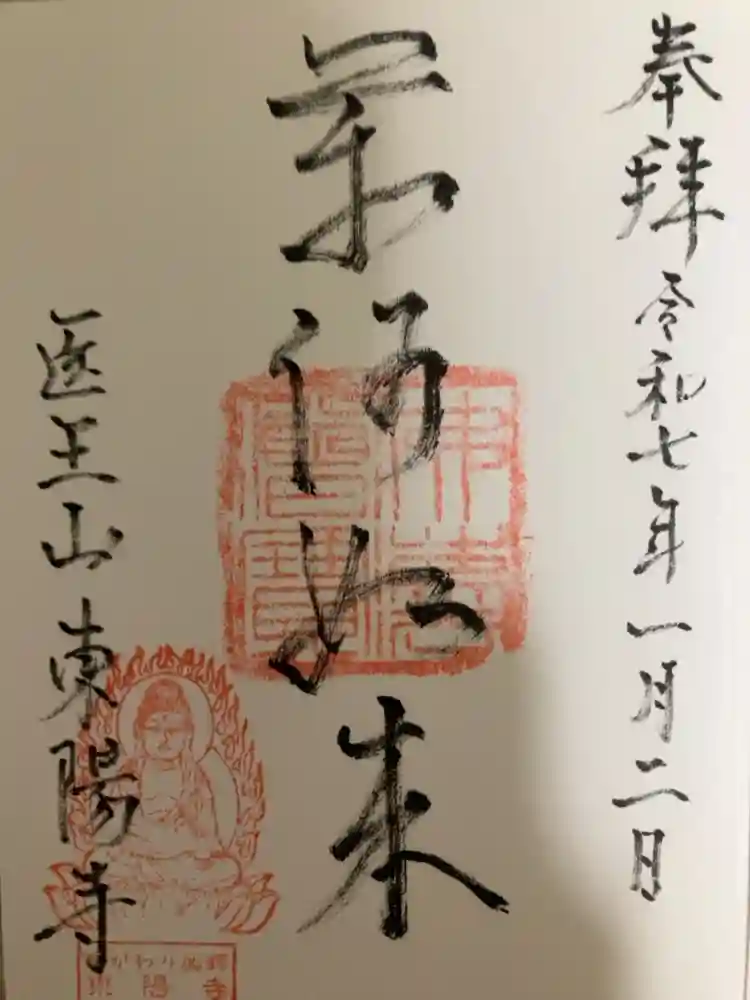 奉拝 令和七年一月二日
薬師如来
佛法僧寶
医王山 東陽寺
東陽寺